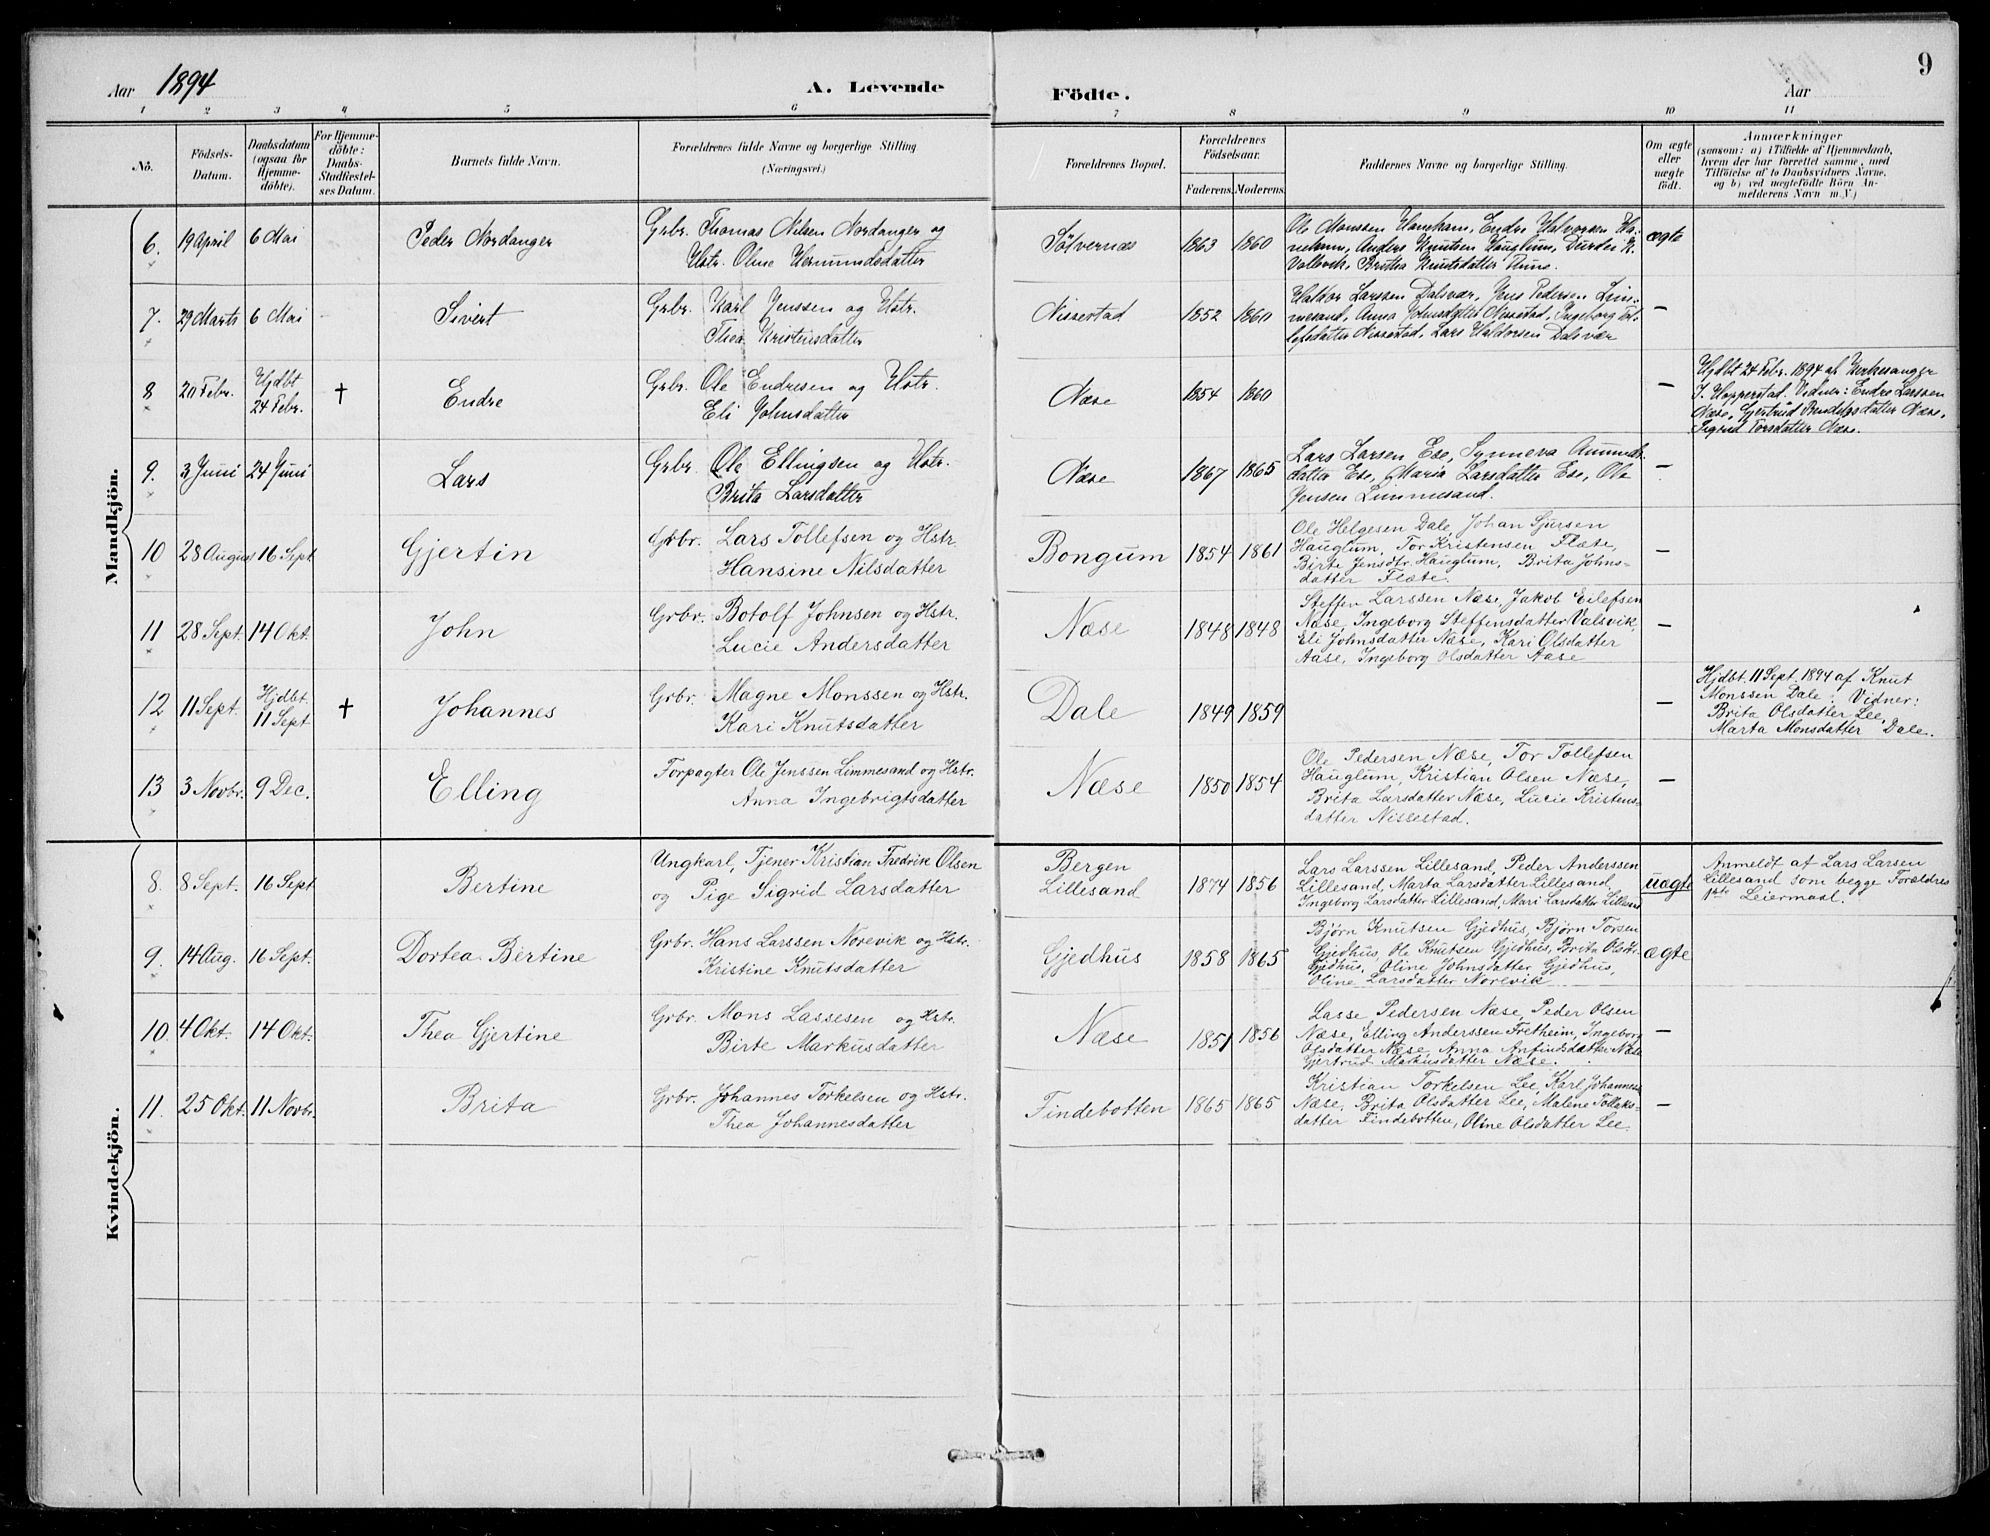 9
Aar 1894
A. Levende Födte.
Aar
1 2 3 4 5 6 7 8 9 10 11
No.
Födsels-Datum.
Daabsdatum (ogsaa for Hjemmedöbte).
For Hjemmedöbte: Daabs-Stadfæstelses Datum.
Barnets fulde Navn.
Forældrenes fulde Navne og borgerlige Stilling
(Næringsvei.)
Forældrenes Bopæl.
Forældrenes Födselsaar.
Faderens. Moderens.
Faddernes Navne og borgelige Stilling.
Om ægte eller uægte födt.
Anmærkninger
(saasom: a) i Tilfælde af Hjemmedaab,
hvem der har forrettet samme, med
Tilföielse af to Daabsvidners Navne,
og b) ved uægtefödte Börn An-
melderens Navn m. V.)
Mandkjön.
6. 19 April 6 Mai Peder Nordanger Grbr. Thomas Nilsen Nordanger og
Hstr. Oline Hermundsdatter
Sölvernæs 1863 1860
Ole Monssen Hanekam, Endre Halvorsen Ha-
nekam, Anders Knutsen Hauglum, Durdei K.
Vallevik, Britha Knutsdatter
ægte
7. 29 Marts 6 Mai Sivert Grbr. Karl Jenssen og Hstr.
Thea Kristensdatter
Nissestad 1852 1860
Haldor Larssen Dalsvær, Jens Pedersen Lim-
mesand, Anna Johnsdatter Nissestad, Ingeborg Tol-
lefsdatter Nissestad, Lars Haldorsen Dalsvær
—
8 20 Febr. Hjdbt 24 Febr. † Endre Grbr. Ole Endresen og Hstr.
Eli Johnsdatter
Næse 1854 1860
—
Hjdbt 24 Febr. 1894 af Kirkesanger
J. Hopperstad. Vidner: Endre Larssen
Næse, Gjertrud Bendixsdatter Næse,
Sigrid Torsdatter Næse.
9. 3 Juni 24 Juni Lars Grbr. Ole Ellingsen og Hstr.
Brita Larsdatter
Næse 1867 1865
Lars Larsen Ese, Synneva Aamunds-
datter Ese, Maria Larsdatter Ese, Ole
Jensen Limmesand.
—
10 28 August 16 Sept. Gjertin Grbr. Lars Tollefsen og Hstr.
Hansine Nilsdatter
Bongum 1854 1861
Ole Helgesen Dale, Johan Sjursen
Hauglum, Tor Kristensen Flæte,
Birte Jensdtr. Hauglum, Brita Johns-
datter Flæte.
—
11 28 Sept. 14 Okt. John Grbr. Botolf Johnsen og Hstr.
Lucie Andersdatter
Næse 1848 1848
Steffen Larssen Næse, Jakob Eilefsen
Næse, Ingeborg Steffensdatter Valsvik,
Eli Johnsdatter Næse, Kari Olsdatter
Aase, Ingeborg Olsdatter Aase
—
12 11 Sept. Hjdbt. 11 Sept † Johannes Grbr. Magne Monssen og Hstr.
Kari Knutsdatter
Dale 1849 1859
—
Hjdbt. 11 Sept. 1894 af Knut
Monssen Dale; Vidner:
Brita Olsdatter Lee,
Marta Monsdatter Dale.
13 3 Novbr. 9 Dec. Elling Forpagter Ole Jenssen Limmesand og Hstr.
Anna Ingebrigtsdatter
Næse 1850 1854
Ole Pedersen Næse, Tor Tollefsen
Hauglum, Kristian Olsen Næse,
Brita Larsdatter Næse, Lucie Kristens-
datter Nissestad.
—
Kvindekjön.
8. 8 Sept. 16 Sept Bertine Ungkarl, Tjener Kristian Fredrik Olsen
og Pige Sigrid Larsdatter
Bergen
Lillesand
1874 1856
Lars Larssen Lillesand, Peder Anderssen
Lillesand, Marta Larsdatter Lillesand,
Ingeborg Larsdatter Lillesand, Mari Larsdatter Lillesand
uægte
Anmeldt af Lars Larsen
Lillesand som begge Forældres
1ste Leiermaal.
9. 14 Aug. 16 Sept. Dortea Bertine Grbr. Hans Larssen Norevik og Hstr.
Kristine Knutsdatter
Gjedhus 1858 1865
Bjørn Knutsen Gjedhus, Bjørn Torsen
Gjedhus, Ole Knutsen Gjedhus, Brita Olsdtr.
Gjedhus, Oline Johnsdatter Gjedhus,
Oline Larsdatter Norevik
ægte
10. 4 Okt. 14 Okt. Thea Gjertine Grbr. Mons Lassesen og Hstr.
Birte Markusdatter
Næse 1851 1856
Lasse Pedersen Næse, Peder Olsen
Næse, Elling Anderssen Fretheim, Ingeborg
Olsdatter Næse, Anna Anfindsdatter Næse
Gjertrud Markusdatter Næse.
—
11. 25 Okt. 11 Novbr. Brita Grbr. Johannes Torkelsen og Hstr.
Thea Johannesdatter
Findebotten 1865 1865
Kristian Torkelsen Lee, Karl Johannes
Næse, Brita Olsdatter Lee, Malene Tollaks-
datter Findebotten, Oline Olsdatter Lee.
—